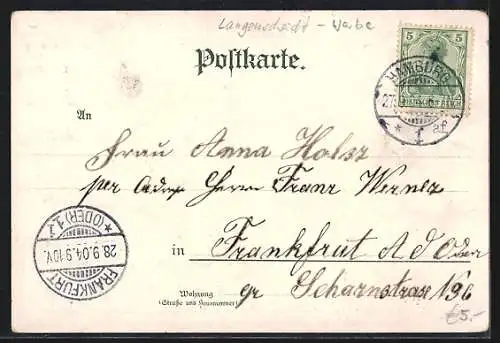 Langenscheidt - Werbe
Postkarte.
5
DEUTSCHES REICH
HAMBURG
27.
* 1 ar
An
Frau Anna Holsz
per Adr. Herrn Franz Werner
in Frankfrut A d Oder
gr Scharnstrase 196
Wohnung
(Straße und Hausnummer)
FRANKFURT
28.9.04.9-10V.
* (ODER) 1 f
€5.-